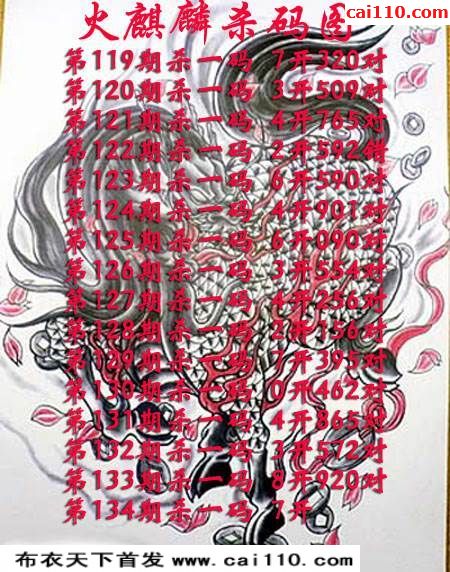 cai110.com
火麒麟杀码图
第119期杀一码 7开320对
第120期杀一码 3开509对
第121期杀一码 4开765对
第122期杀一码 2开592错
第123期杀一码 6开590对
第124期杀一码 4开901对
第125期杀一码 6开090对
第126期杀一码 3开554对
第127期杀一码 4开256对
第128期杀一码 2开156对
第129期杀一码 1开395对
第130期杀一码 0开462对
第131期杀一码 4开865对
第132期杀一码 3开572对
第133期杀一码 8开920对
第134期杀一码 7开
布衣天下首发 www.cai110.com